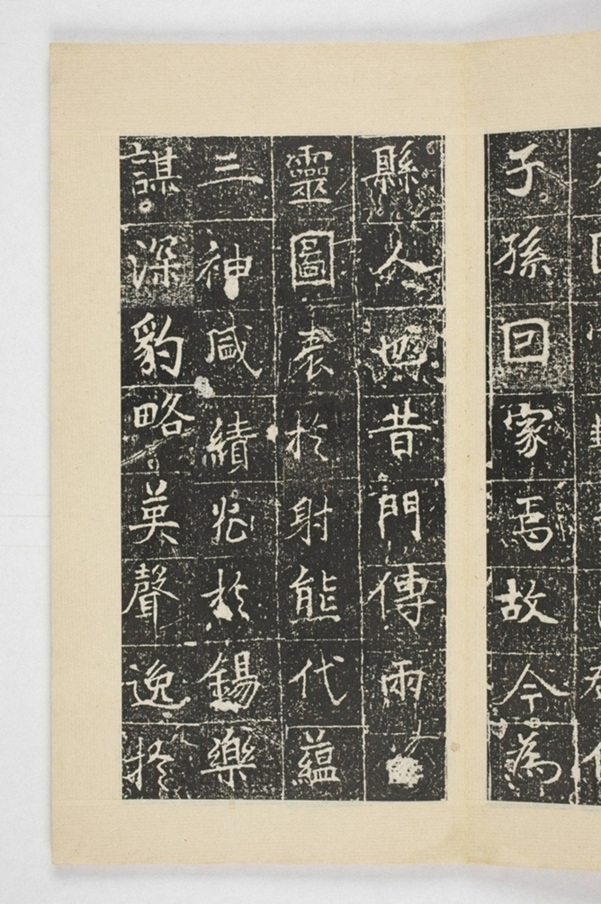 子孫回家焉故今為
縣人也昔門傳兩
靈圖表於射能代蘊
三神咸績兆於錫樂
謀深豹略英聲逸於